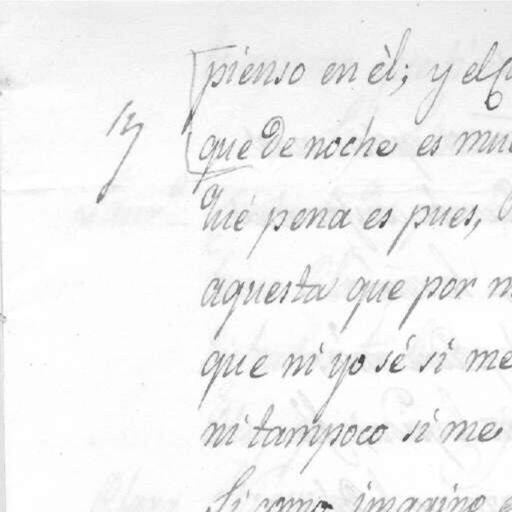 pienso en èl; y el
que de noche es
Qué pena es pues,
aquesta que por
que ni yo sé si me
ni tampoco si me
Si como imagino